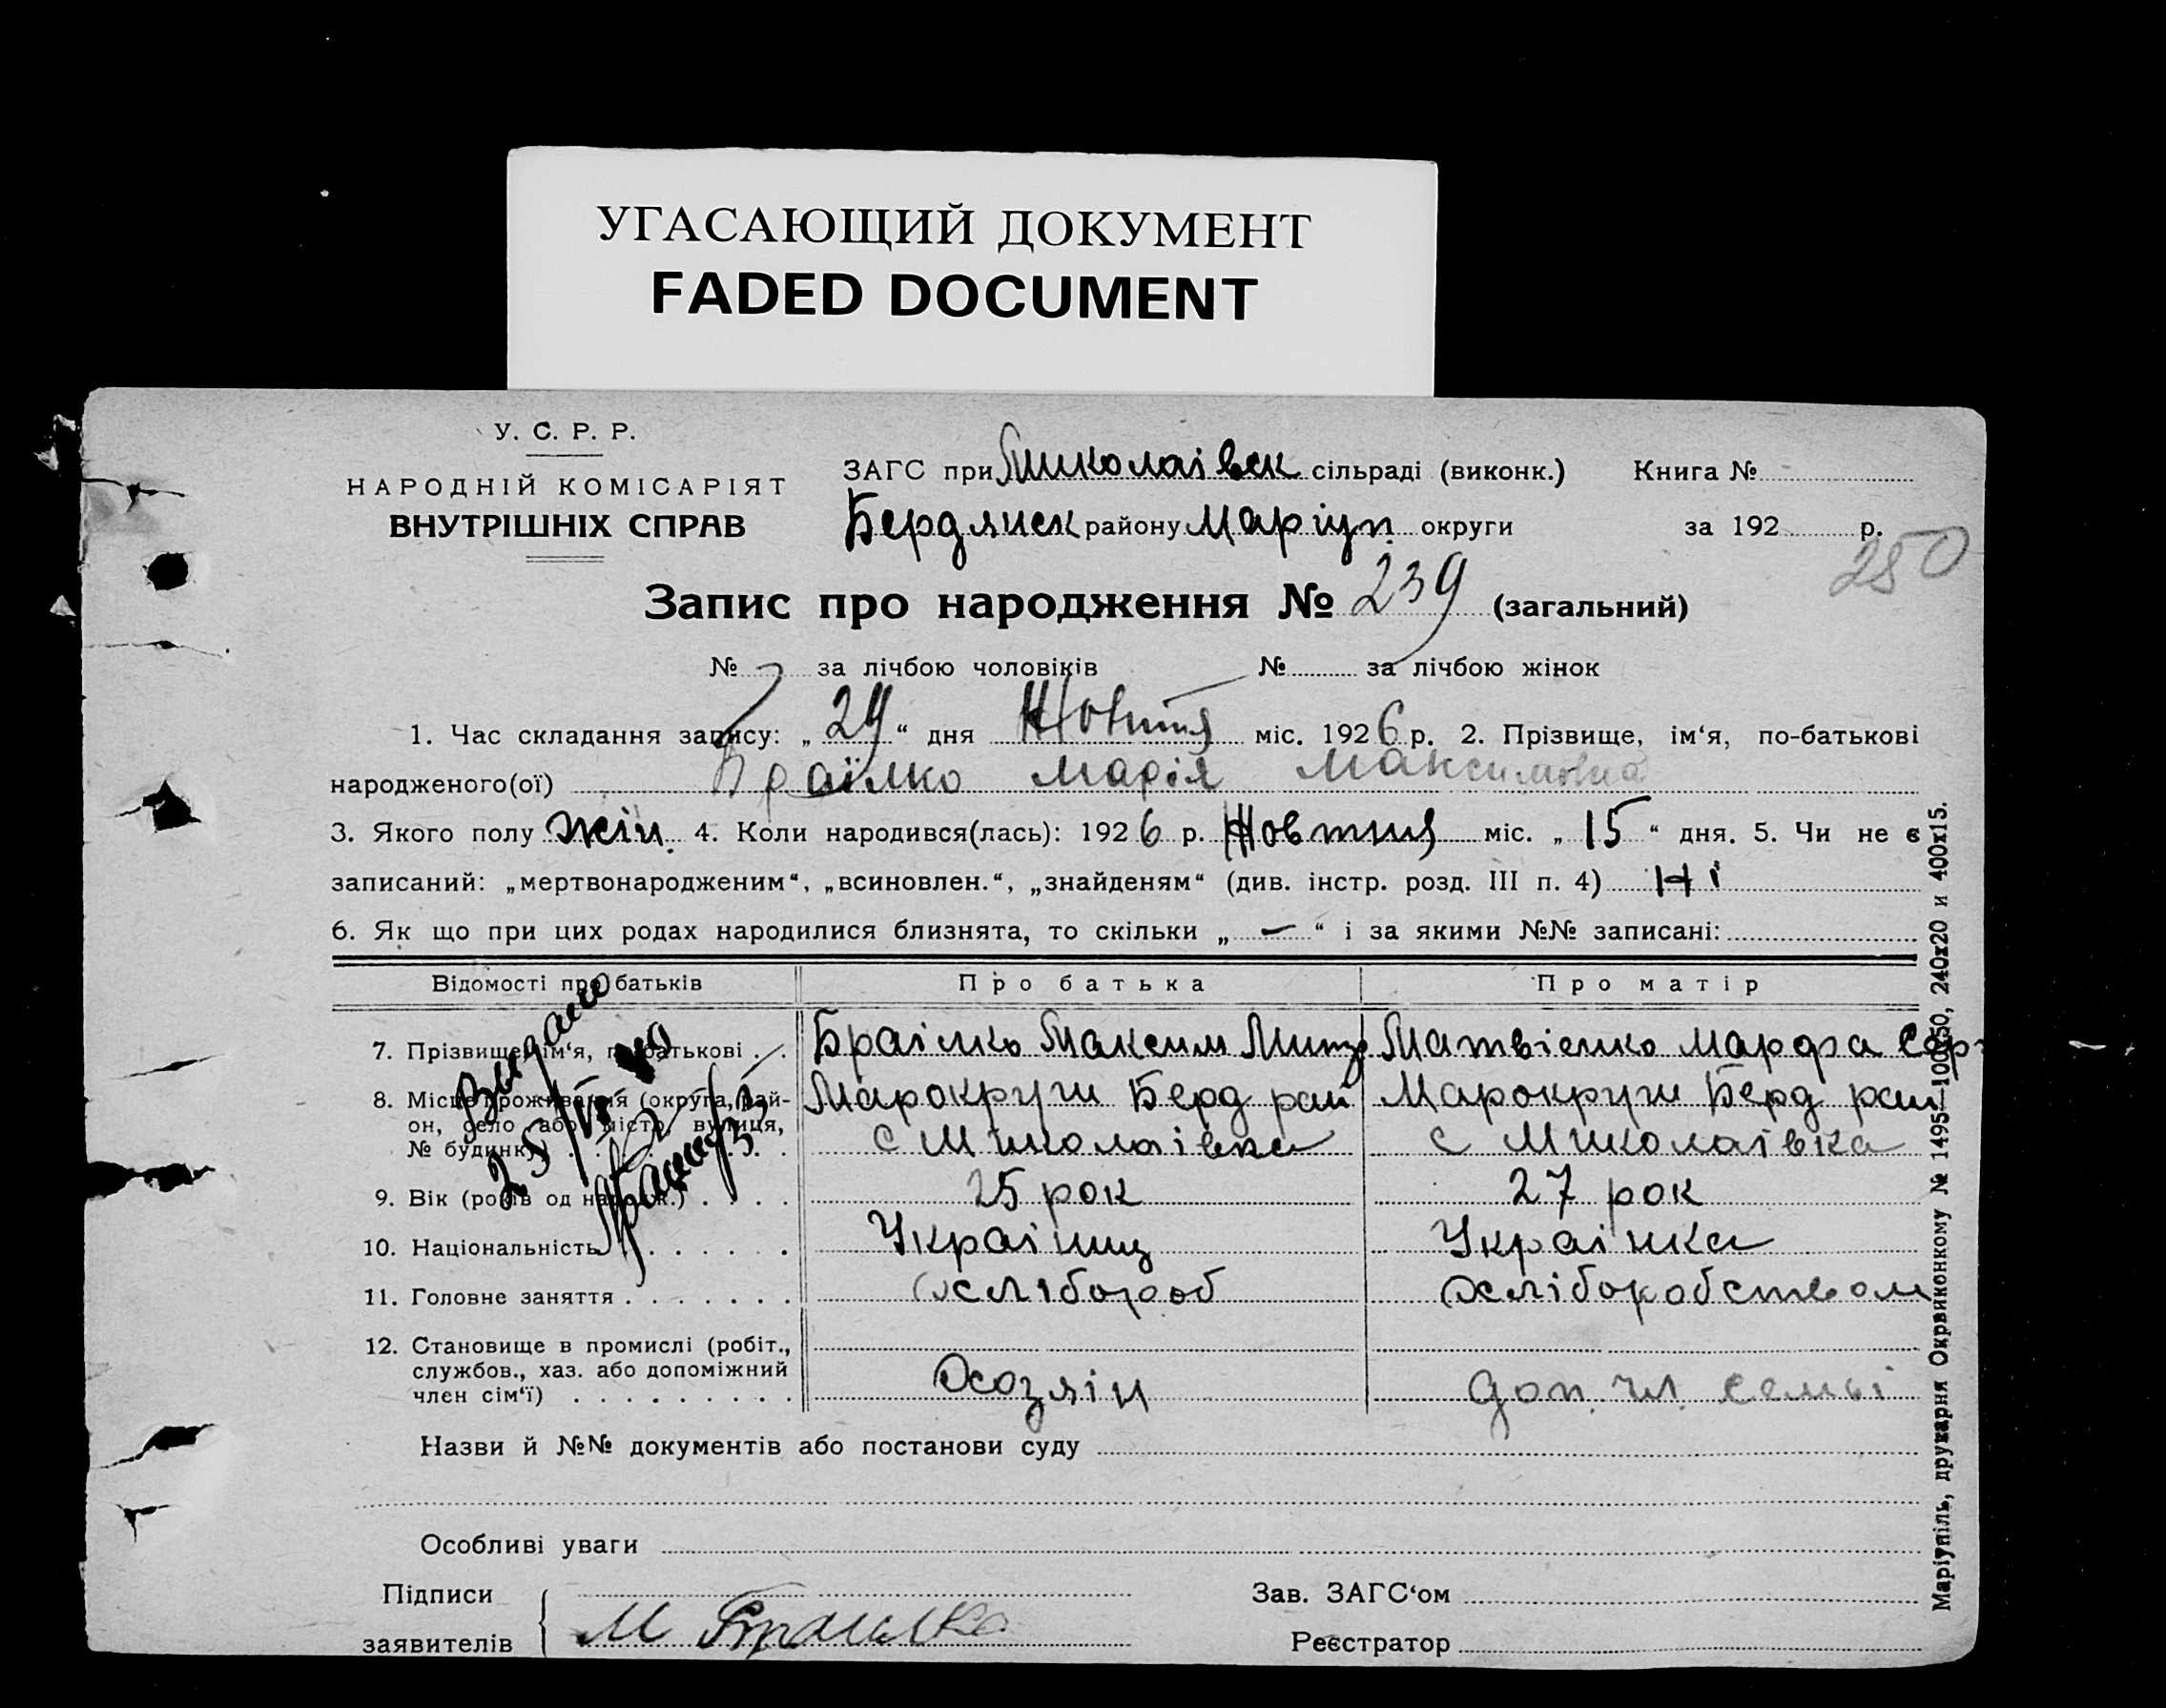 УГАСАЮЩИЙ ДОКУМЕНТ
FADED DOCUMENT
У. С. Р. Р.
НАРОДНІЙ КОМІСАРІЯТ
ВНУТРІШНІХ СПРАВ
ЗАГС при Миколаівск сільраді (виконк.) Книга №
Бердянск району Маріуп. округи за 192 р.
250
Запис про народження № 239 (загальний)
№ за лічбою чоловіків № за лічбою жінок
1. Час складання запису: „ 29 “ дня Жовтня міс. 1926 р. 2. Прізвище, ім‘я, по-батькові
народженого(ої) Браїлко Марія Максимовна
3. Якого полу жін. 4. Коли народився(лась): 1926 р. Жовтня міс. „ 15 “ дня. 5. Чи не є
записаний: „мертвонародженим“, „всиновлен.“, „знайденям“ (див. інстр. розд. III п. 4) Ні
6. Як що при цих родах народилися близнята, то скільки „ — “ і за якими №№ записані:
Відомості про батьків Про батька Про матір
7. Прізвище, ім‘я, по-батькові . . Браілко Максим Матвіенко Марфа
8. Місце проживання (округа, рай- Марокруги Берд рай Марокруги Берд рай
он, село або місто, вулиця,
№ будинку) с Миколаівка с Миколаівка
9. Вік (років од народж.) . . . . 25 рок 27 рок
10. Національність . . . . . . Украінец Украінка
11. Головне заняття . . . . . . . хлібороб хліборобством
12. Становище в промислі (робіт.,
службов., хаз. або допоміжний
член сім‘ї) . . . . . . . . . Хозяін доп. чл. семьі
Выдано
Назви й №№ документів або постанови суду
Особливі уваги
Підписи Зав. ЗАГС‘ом
заявителів М Браилко Реєстратор
Маріупіль, друкарня Окрвиконкому № 1495—10050, 240х20 и 400х15.